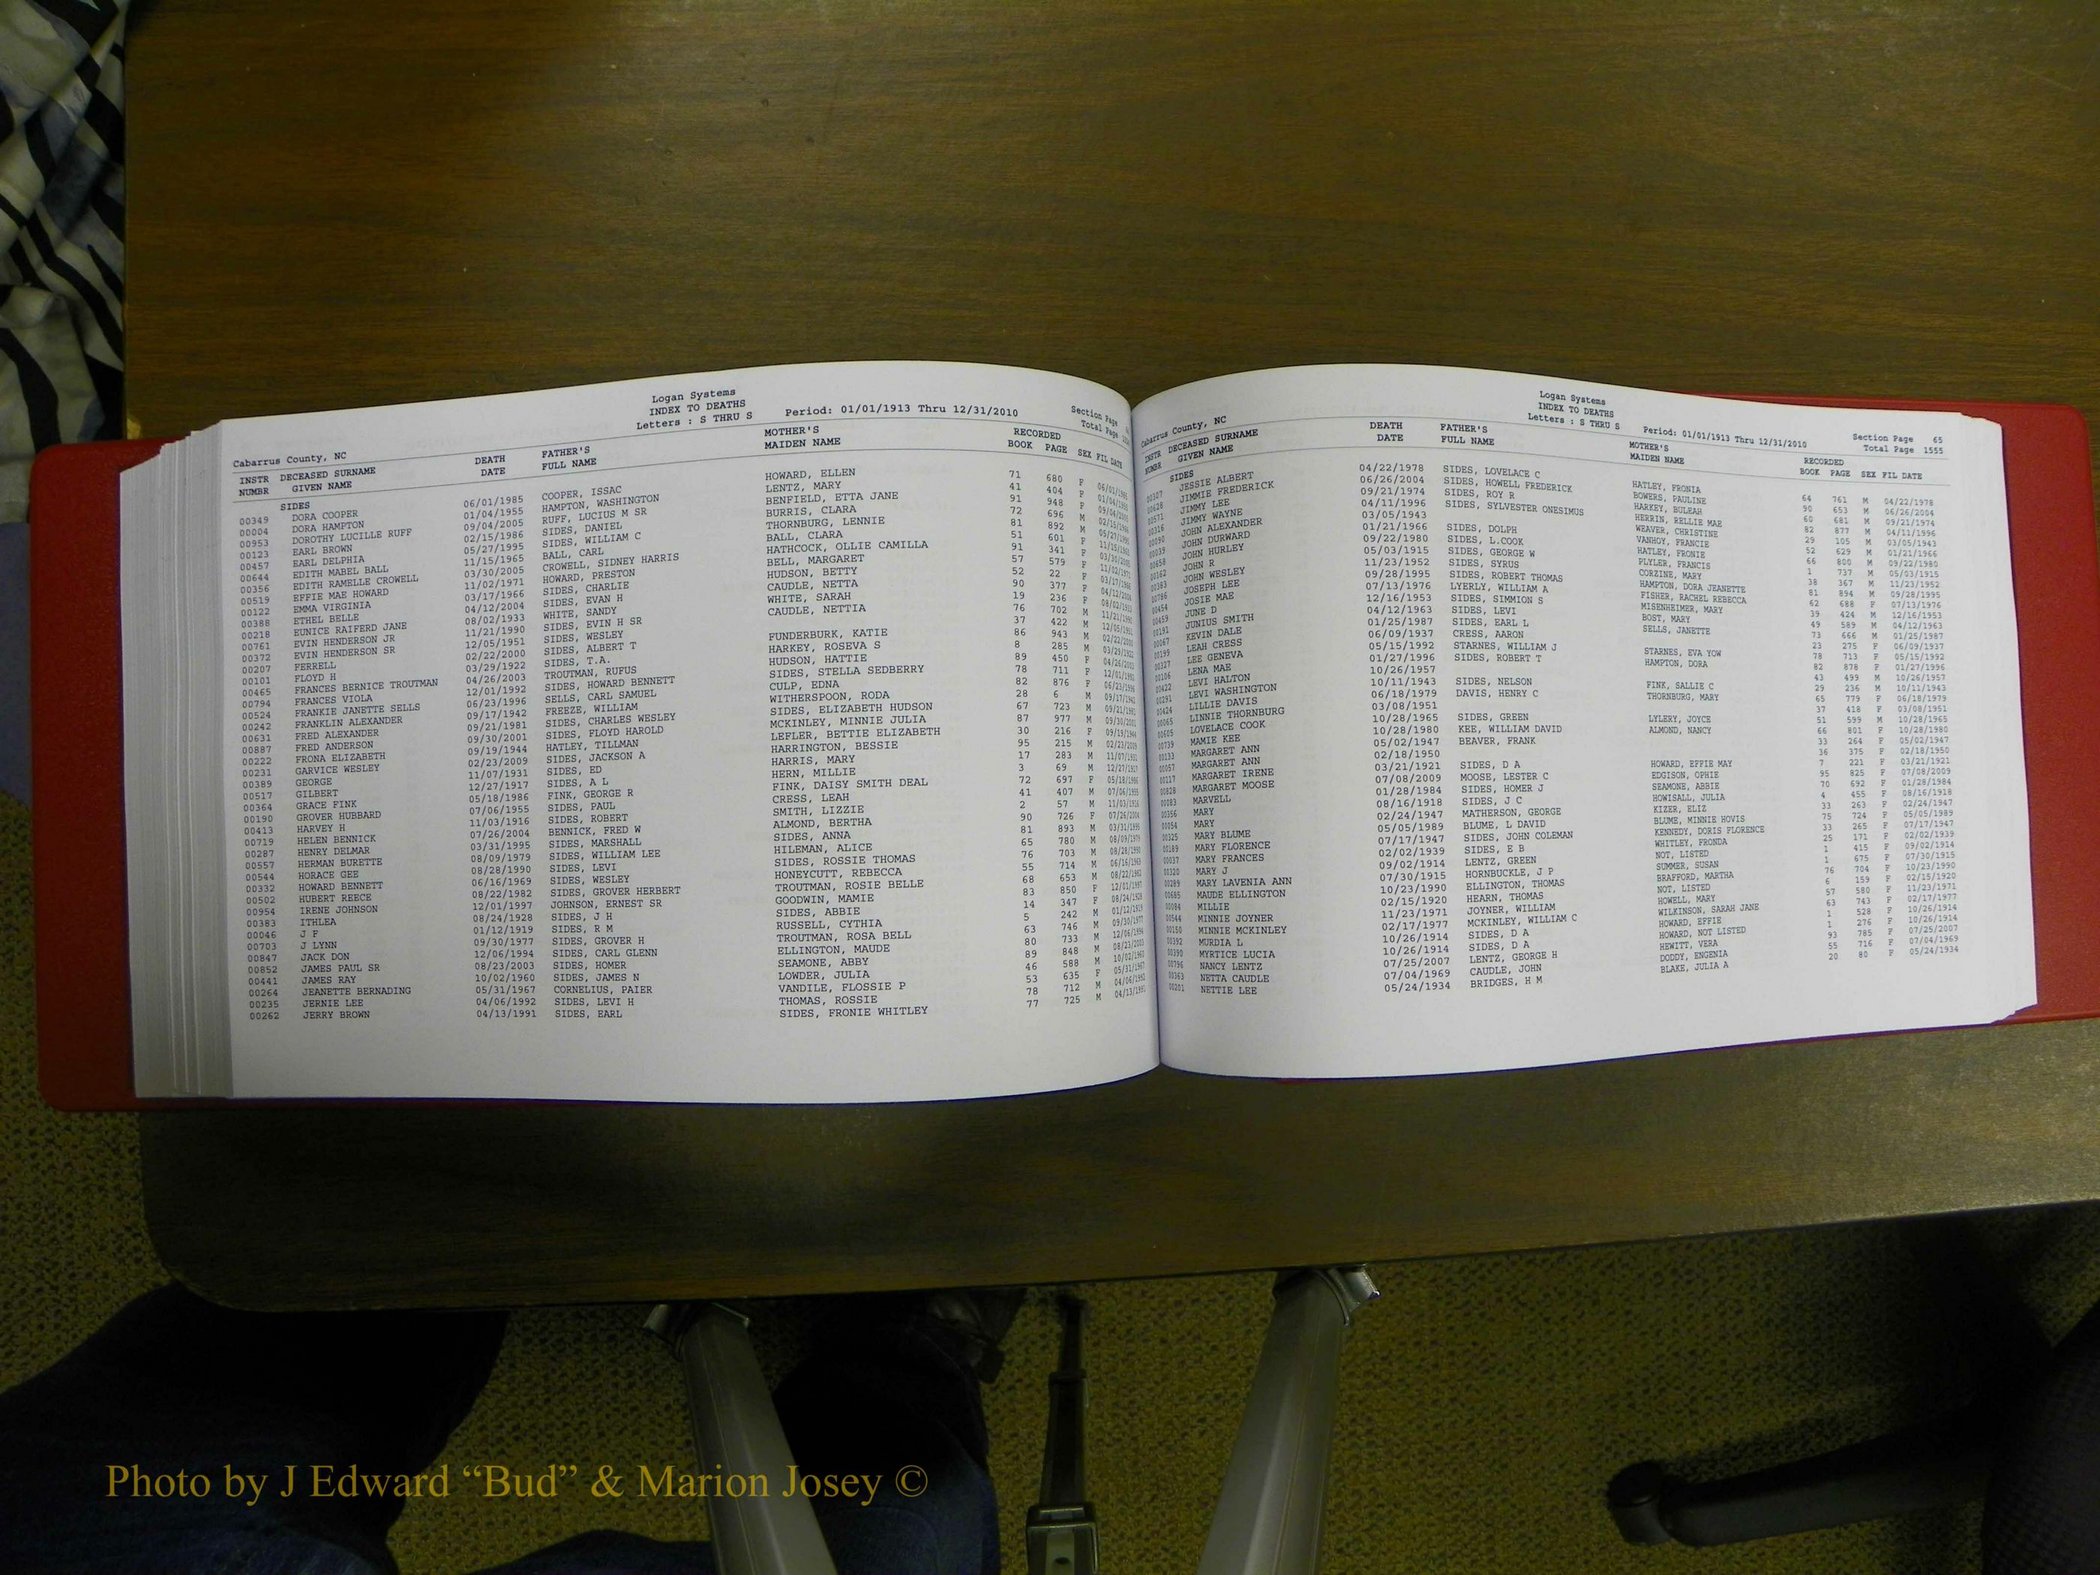 Logan Systems
INDEX TO DEATHS
Letters : S THRU S Period: 01/01/1913 Thru 12/31/2010 Section Page
Cabarrus County, NC Total Page
INSTR DECEASED SURNAME DEATH FATHER'S MOTHER'S RECORDED
NUMBR GIVEN NAME DATE FULL NAME MAIDEN NAME BOOK PAGE SEX FIL DATE
SIDES
00349 DORA COOPER 06/01/1985 COOPER, ISSAC HOWARD, ELLEN 71 680 F 06/01/1985
00004 DORA HAMPTON 01/04/1955 HAMPTON, WASHINGTON LENTZ, MARY 41 404 F 01/04/1955
00953 DOROTHY LUCILLE RUFF 09/04/2005 RUFF, LUCIUS M SR BENFIELD, ETTA JANE 91 948 F 09/04/2005
00123 EARL BROWN 02/15/1986 SIDES, DANIEL BURRIS, CLARA 72 696 M 02/15/1986
00457 EARL DELPHIA 05/27/1995 SIDES, WILLIAM C THORNBURG, LENNIE 81 892 M 05/27/1995
00644 EDITH MABEL BALL 11/15/1965 BALL, CARL BALL, CLARA 51 601 F 11/15/1965
00356 EDITH RAMELLE CROWELL 03/30/2005 CROWELL, SIDNEY HARRIS HATHCOCK, OLLIE CAMILLA 91 341 F 03/30/2005
00519 EFFIE MAE HOWARD 11/02/1971 HOWARD, PRESTON BELL, MARGARET 57 579 F 11/02/1971
00122 EMMA VIRGINIA 03/17/1966 SIDES, CHARLIE HUDSON, BETTY 52 22 F 03/17/1966
00388 ETHEL BELLE 04/12/2004 SIDES, EVAN H CAUDLE, NETTA 90 377 F 04/12/2004
00218 EUNICE RAIFERD JANE 08/02/1933 WHITE, SANDY WHITE, SARAH 19 236 F 08/02/1933
00761 EVIN HENDERSON JR 11/21/1990 SIDES, EVIN H SR CAUDLE, NETTIA 76 702 M 11/21/1990
00372 EVIN HENDERSON SR 12/05/1951 SIDES, WESLEY 37 422 M 12/05/1951
00207 FERRELL 02/22/2000 SIDES, ALBERT T FUNDERBURK, KATIE 86 943 M 02/22/2000
00101 FLOYD H 03/29/1922 SIDES, T.A. HARKEY, ROSEVA S 8 285 M 03/29/1922
00465 FRANCES BERNICE TROUTMAN 04/26/2003 TROUTMAN, RUFUS HUDSON, HATTIE 89 450 F 04/26/2003
00794 FRANCES VIOLA 12/01/1992 SIDES, HOWARD BENNETT SIDES, STELLA SEDBERRY 78 711 F 12/01/1992
00524 FRANKIE JANETTE SELLS 06/23/1996 SELLS, CARL SAMUEL CULP, EDNA 82 876 F 06/23/1996
00242 FRANKLIN ALEXANDER 09/17/1942 FREEZE, WILLIAM WITHERSPOON, RODA 28 6 M 09/17/1942
00631 FRED ALEXANDER 09/21/1981 SIDES, CHARLES WESLEY SIDES, ELIZABETH HUDSON 67 723 M 09/21/1981
00887 FRED ANDERSON 09/30/2001 SIDES, FLOYD HAROLD MCKINLEY, MINNIE JULIA 87 977 M 09/30/2001
00222 FRONA ELIZABETH 09/19/1944 HATLEY, TILLMAN LEFLER, BETTIE ELIZABETH 30 216 F 09/19/1944
00231 GARVICE WESLEY 02/23/2009 SIDES, JACKSON A HARRINGTON, BESSIE 95 215 M 02/23/2009
00389 GEORGE 11/07/1931 SIDES, ED HARRIS, MARY 17 283 M 11/07/1931
00517 GILBERT 12/27/1917 SIDES, A L HERN, MILLIE 3 69 M 12/27/1917
00364 GRACE FINK 05/18/1986 FINK, GEORGE R FINK, DAISY SMITH DEAL 72 697 F 05/18/1986
00190 GROVER HUBBARD 07/06/1955 SIDES, PAUL CRESS, LEAH 41 407 M 07/06/1955
00413 HARVEY H 11/03/1916 SIDES, ROBERT SMITH, LIZZIE 2 57 M 11/03/1916
00719 HELEN BENNICK 07/26/2004 BENNICK, FRED W ALMOND, BERTHA 90 726 F 07/26/2004
00287 HENRY DELMAR 03/31/1995 SIDES, MARSHALL SIDES, ANNA 81 893 M 03/31/1995
00557 HERMAN BURETTE 08/09/1979 SIDES, WILLIAM LEE HILEMAN, ALICE 65 780 M 08/09/1979
00544 HORACE GEE 08/28/1990 SIDES, LEVI SIDES, ROSSIE THOMAS 76 703 M 08/28/1990
00332 HOWARD BENNETT 06/16/1969 SIDES, WESLEY HONEYCUTT, REBECCA 55 714 M 06/16/1969
00502 HUBERT REECE 08/22/1982 SIDES, GROVER HERBERT TROUTMAN, ROSIE BELLE 68 653 M 08/22/1982
00954 IRENE JOHNSON 12/01/1997 JOHNSON, ERNEST SR GOODWIN, MAMIE 83 850 F 12/01/1997
00383 ITHLEA 08/24/1928 SIDES, J H SIDES, ABBIE 14 347 F 08/24/1928
00046 J F 01/12/1919 SIDES, R M RUSSELL, CYTHIA 5 242 M 01/12/1919
00703 J LYNN 09/30/1977 SIDES, GROVER H TROUTMAN, ROSA BELL 63 746 M 09/30/1977
00847 JACK DON 12/06/1994 SIDES, CARL GLENN ELLINGTON, MAUDE 80 733 M 12/06/1994
00852 JAMES PAUL SR 08/23/2003 SIDES, HOMER SEAMONE, ABBY 89 848 M 08/23/2003
00441 JAMES RAY 10/02/1960 SIDES, JAMES N LOWDER, JULIA 46 588 M 10/02/1960
00264 JEANETTE BERNADING 05/31/1967 CORNELIUS, PAIER VANDILE, FLOSSIE P 53 635 F 05/31/1967
00235 JERNIE LEE 04/06/1992 SIDES, LEVI H THOMAS, ROSSIE 78 712 M 04/06/1992
00262 JERRY BROWN 04/13/1991 SIDES, EARL SIDES, FRONIE WHITLEY 77 725 M 04/13/1991
Logan Systems
INDEX TO DEATHS
Letters : S THRU S Period: 01/01/1913 Thru 12/31/2010 Section Page 65
Cabarrus County, NC Total Page 1555
INSTR DECEASED SURNAME DEATH FATHER'S MOTHER'S RECORDED
NUMBR GIVEN NAME DATE FULL NAME MAIDEN NAME BOOK PAGE SEX FIL DATE
SIDES
00307 JESSIE ALBERT 04/22/1978 SIDES, LOVELACE C HATLEY, FRONIA 64 761 M 04/22/1978
00628 JIMMIE FREDERICK 06/26/2004 SIDES, HOWELL FREDERICK BOWERS, PAULINE 90 653 M 06/26/2004
00571 JIMMY LEE 09/21/1974 SIDES, ROY R HARKEY, BULEAH 60 681 M 09/21/1974
00316 JIMMY WAYNE 04/11/1996 SIDES, SYLVESTER ONESIMUS HERRIN, RELLIE MAE 82 877 M 04/11/1996
00090 JOHN ALEXANDER 03/05/1943 WEAVER, CHRISTINE 29 105 M 03/05/1943
00039 JOHN DURWARD 01/21/1966 SIDES, DOLPH VANHOY, FRANCIE 52 629 M 01/21/1966
00658 JOHN HURLEY 09/22/1980 SIDES, L.COOK HATLEY, FRONIE 66 800 M 09/22/1980
00162 JOHN R 05/03/1915 SIDES, GEORGE W PLYLER, FRANCIS 1 737 M 05/03/1915
00383 JOHN WESLEY 11/23/1952 SIDES, SYRUS CORZINE, MARY 38 367 M 11/23/1952
00786 JOSEPH LEE 09/28/1995 SIDES, ROBERT THOMAS HAMPTON, DORA JEANETTE 81 894 M 09/28/1995
00454 JOSIE MAE 07/13/1976 LYERLY, WILLIAM A FISHER, RACHEL REBECCA 62 688 F 07/13/1976
00459 JUNE D 12/16/1953 SIDES, SIMMION S MISENHEIMER, MARY 39 424 M 12/16/1953
00191 JUNIUS SMITH 04/12/1963 SIDES, LEVI BOST, MARY 49 589 M 04/12/1963
00067 KEVIN DALE 01/25/1987 SIDES, EARL L SELLS, JANETTE 73 666 M 01/25/1987
00199 LEAH CRESS 06/09/1937 CRESS, AARON 23 275 F 06/09/1937
00327 LEE GENEVA 05/15/1992 STARNES, WILLIAM J STARNES, EVA YOW 78 713 F 05/15/1992
00106 LENA MAE 01/27/1996 SIDES, ROBERT T HAMPTON, DORA 82 878 F 01/27/1996
00422 LEVI HALTON 10/26/1957 43 499 M 10/26/1957
00291 LEVI WASHINGTON 10/11/1943 SIDES, NELSON FINK, SALLIE C 29 236 M 10/11/1943
00424 LILLIE DAVIS 06/18/1979 DAVIS, HENRY C THORNBURG, MARY 65 779 F 06/18/1979
00065 LINNIE THORNBURG 03/08/1951 37 418 F 03/08/1951
00605 LOVELACE COOK 10/28/1965 SIDES, GREEN LYLERY, JOYCE 51 599 M 10/28/1965
00739 MAMIE KEE 10/28/1980 KEE, WILLIAM DAVID ALMOND, NANCY 66 801 F 10/28/1980
00133 MARGARET ANN 05/02/1947 BEAVER, FRANK 33 264 F 05/02/1947
00057 MARGARET ANN 02/18/1950 36 375 F 02/18/1950
00217 MARGARET IRENE 03/21/1921 SIDES, D A HOWARD, EFFIE MAY 7 221 F 03/21/1921
00828 MARGARET MOOSE 07/08/2009 MOOSE, LESTER C EDGISON, OPHIE 95 825 F 07/08/2009
00083 MARVELL 01/28/1984 SIDES, HOMER J SEAMONE, ABBIE 70 692 F 01/28/1984
00356 MARY 08/16/1918 SIDES, J C HOWISALL, JULIA 4 455 F 08/16/1918
00054 MARY 02/24/1947 MATHERSON, GEORGE KIZER, ELIZ 33 263 F 02/24/1947
00325 MARY BLUME 05/05/1989 BLUME, L DAVID BLUME, MINNIE HOVIS 75 724 F 05/05/1989
00189 MARY FLORENCE 07/17/1947 SIDES, JOHN COLEMAN KENNEDY, DORIS FLORENCE 33 265 F 07/17/1947
00037 MARY FRANCES 02/02/1939 SIDES, E B WHITLEY, FRONDA 25 171 F 02/02/1939
00320 MARY J 09/02/1914 LENTZ, GREEN NOT, LISTED 1 415 F 09/02/1914
00289 MARY LAVENIA ANN 07/30/1915 HORNBUCKLE, J P SUMMER, SUSAN 1 675 F 07/30/1915
00685 MAUDE ELLINGTON 10/23/1990 ELLINGTON, THOMAS BRAFFORD, MARTHA 76 704 F 10/23/1990
00084 MILLIE 02/15/1920 HEARN, THOMAS NOT, LISTED 6 159 F 02/15/1920
00544 MINNIE JOYNER 11/23/1971 JOYNER, WILLIAM HOWELL, MARY 57 580 F 11/23/1971
00150 MINNIE MCKINLEY 02/17/1977 MCKINLEY, WILLIAM C WILKINSON, SARAH JANE 63 743 F 02/17/1977
00392 MURDIA L 10/26/1914 SIDES, D A HOWARD, EFFIE 1 528 F 10/26/1914
00390 MYRTICE LUCIA 10/26/1914 SIDES, D A HOWARD, NOT LISTED 1 276 F 10/26/1914
00796 NANCY LENTZ 07/25/2007 LENTZ, GEORGE H HEWITT, VERA 93 785 F 07/25/2007
00363 NETTA CAUDLE 07/04/1969 CAUDLE, JOHN DODDY, ENGENIA 55 716 F 07/04/1969
00201 NETTIE LEE 05/24/1934 BRIDGES, H M BLAKE, JULIA A 20 80 F 05/24/1934
Photo by J Edward “Bud” & Marion Josey ©